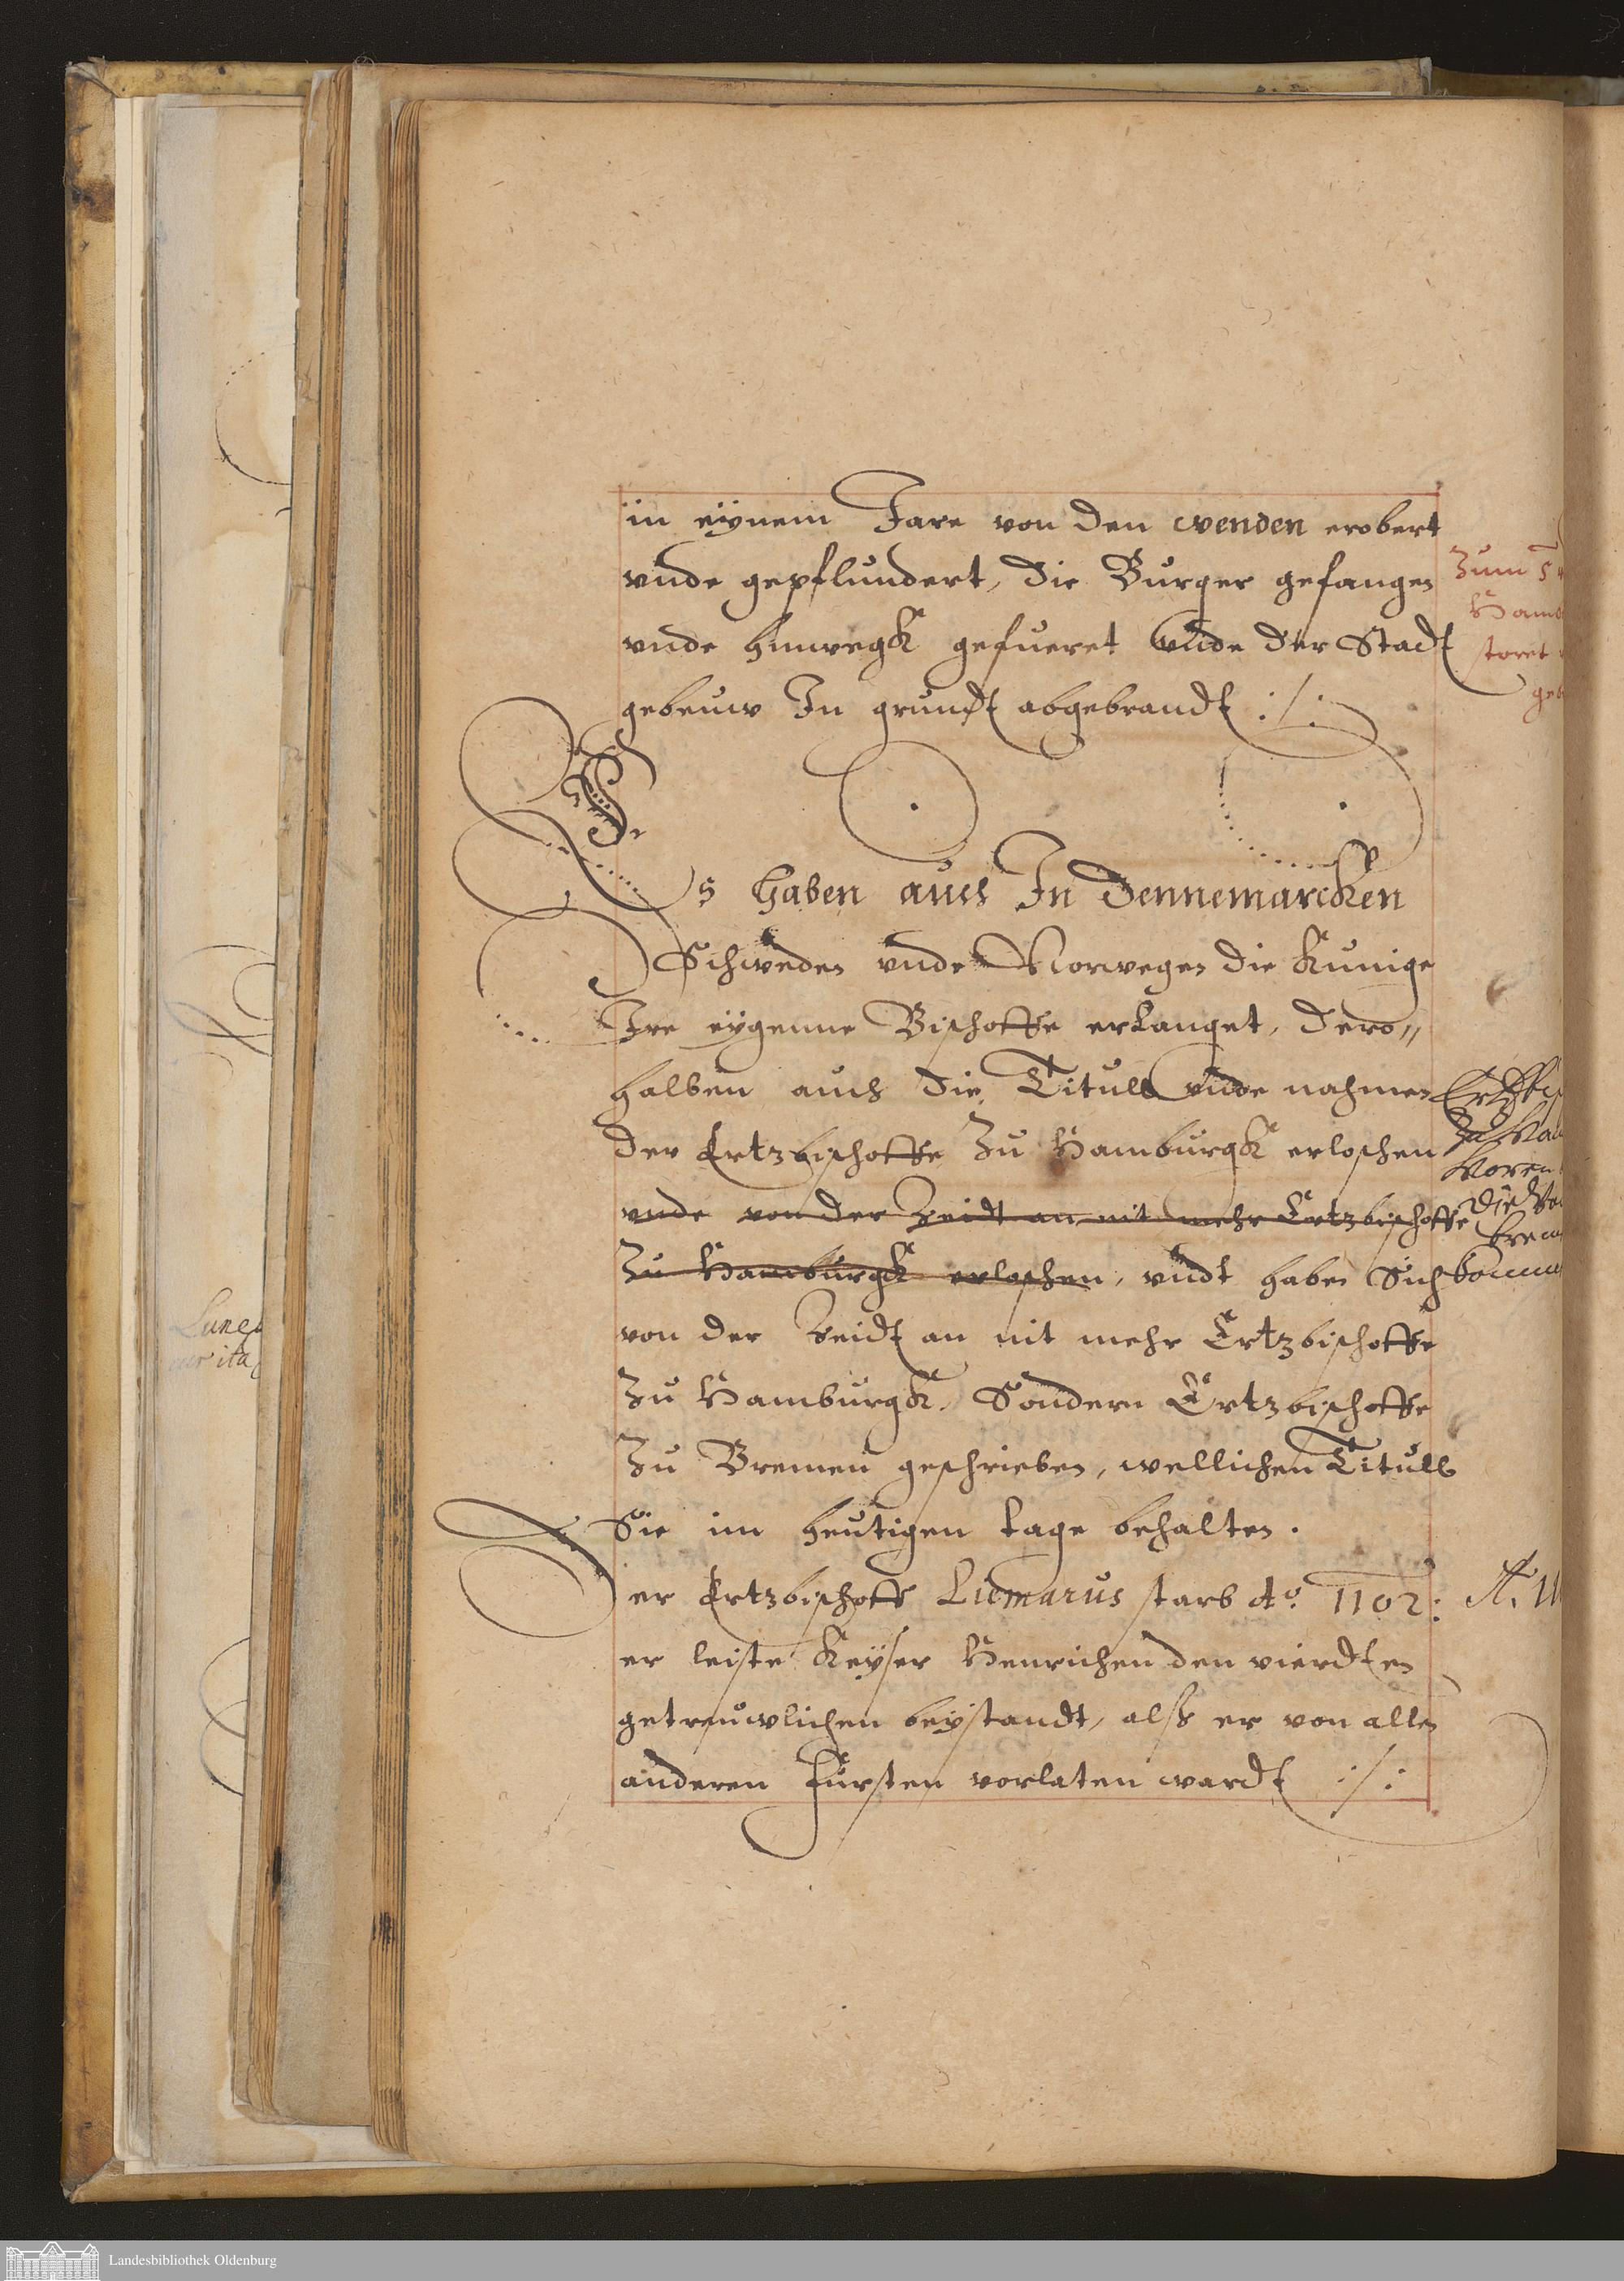 in eÿnem Jare von den wenden erobert
vnde gepflundert, die Burger gefangen
vnde hinwegk gefueret vnde der Stadt
gebeuw In grundt abgebrandt :/:
Es haben auch In Dennemarcken
Schweden vnde Norwegen die Kunige
Ire eÿgenne Bischoffe erlanget, dero„
halben auch die Titull vnde nahmen
der Ertzbischoffe Zu Hamburgk erloschen
vnde von der Zeidt an nit mehr Ertzbischoffe
Zu Hamburgk erloschen, vndt haben Sich
von der Zeidt an nit mehr Ertzbischoffe
Zu Hamburgk, Sondern Ertzbischoffe
Zu Bremen geschrieben, wellichen Titull
Sie im heutigen tage behalten.
Der Ertzbischoff Liemarus starb Aº. 1102:
er leiste Keÿser Henrichen den vierdten
getreuwlichen beÿstandt, alß er von allen
anderen Fürsten vorlaten wardt :/:
Zum 5
Ham
storet
geb
Ertzbi
Zu Ha
Die
A. 11
Lune
Landesbibliothek Oldenburg